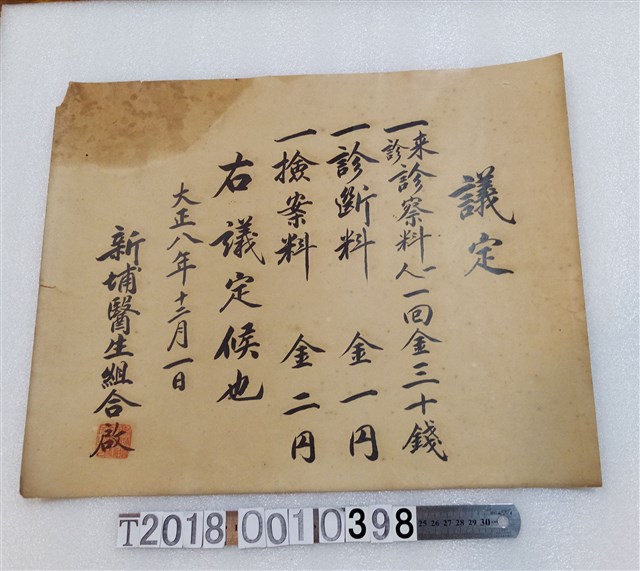 議定
一来診診察料一人一回金三十錢
一診断料 金一円
一撿案料 金二円
右議定候也
大正八年十二月一日
新埔醫生組合啟
T2018 0010398
25 26 27 28 29 30